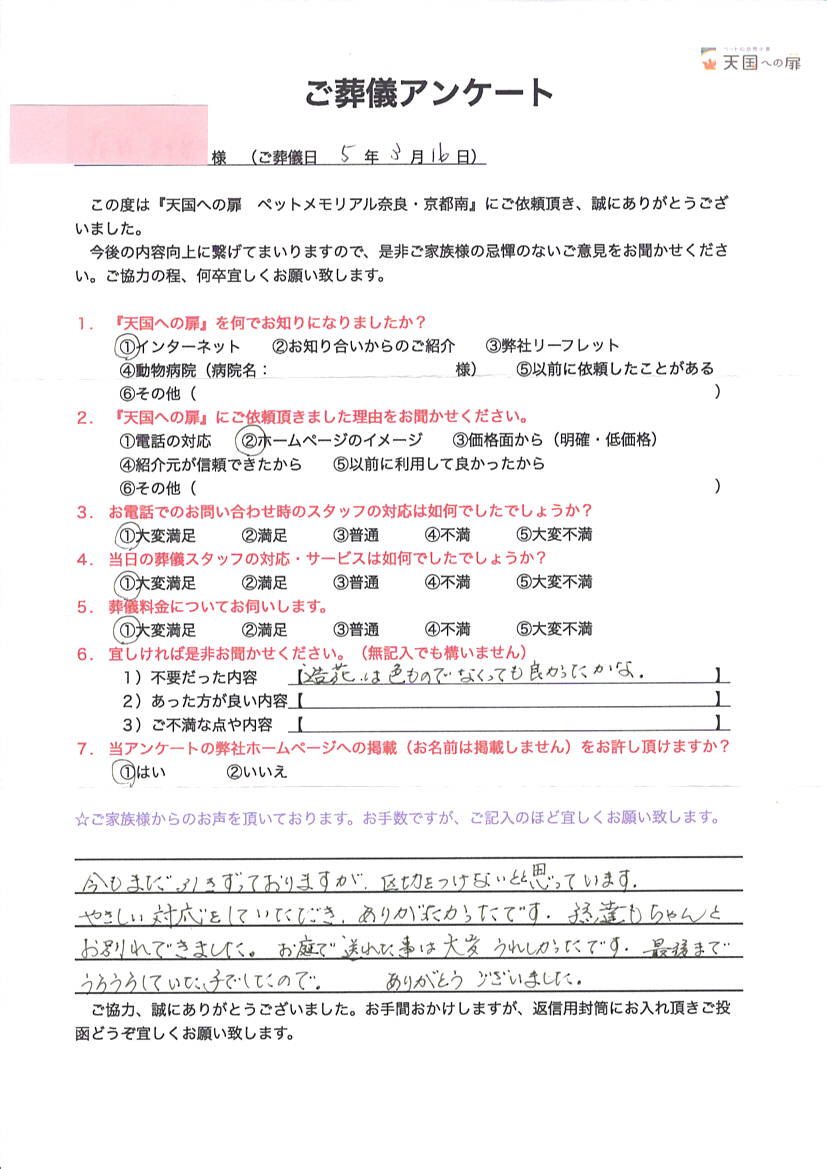 ペットの自然葬
天国への扉
ご葬儀アンケート
様 （ご葬儀日 5 年 3 月 16 日）
この度は『天国への扉 ペットメモリアル奈良・京都南』にご依頼頂き、誠にありがとうござ
いました。
今後の内容向上に繋げてまいりますので、是非ご家族様の忌憚のないご意見をお聞かせくださ
い。ご協力の程、何卒宜しくお願い致します。
1． 『天国への扉』を何でお知りになりましたか？
①インターネット ②お知り合いからのご紹介 ③弊社リーフレット
④動物病院（病院名： 様） ⑤以前に依頼したことがある
⑥その他（ ）
2． 『天国への扉』にご依頼頂きました理由をお聞かせください。
①電話の対応 ②ホームページのイメージ ③価格面から（明確・低価格）
④紹介元が信頼できたから ⑤以前に利用して良かったから
⑥その他（ ）
3． お電話でのお問い合わせ時のスタッフの対応は如何でしたでしょうか？
①大変満足 ②満足 ③普通 ④不満 ⑤大変不満
4． 当日の葬儀スタッフの対応・サービスは如何でしたでしょうか？
①大変満足 ②満足 ③普通 ④不満 ⑤大変不満
5． 葬儀料金についてお伺いします。
①大変満足 ②満足 ③普通 ④不満 ⑤大変不満
6． 宜しければ是非お聞かせください。（無記入でも構いません）
1）不要だった内容 【造花は色ものでなくっても良かったかな. 】
2）あった方が良い内容【 】
3）ご不満な点や内容 【 】
7． 当アンケートの弊社ホームページへの掲載（お名前は掲載しません）をお許し頂けますか？
①はい ②いいえ
☆ご家族様からのお声を頂いております。お手数ですが、ご記入のほど宜しくお願い致します。
今もまだ引きずっておりますが、区切をつけないとと思っています.
やさしい対応をしていただき、ありがたかったです. 孫達もちゃんと
お別れできました。 お庭で送れた事は大変うれしかったです. 最後まで
うろうろしていた子でしたので。 ありがとうございました.
ご協力、誠にありがとうございました。お手間おかけしますが、返信用封筒にお入れ頂きご投
函どうぞ宜しくお願い致します。